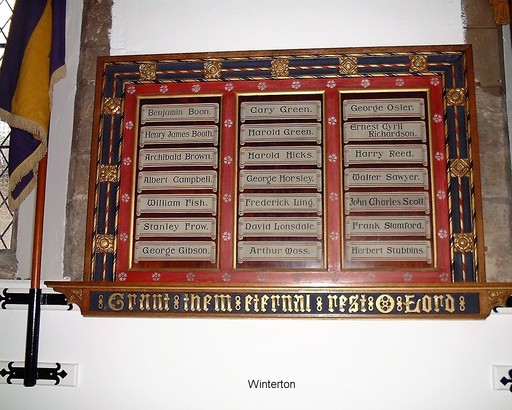 Benjamin Boon.
Henry James Booth.
Archibald Brown.
Albert Campbell.
William Fish.
Stanley Frow.
George Gibson.
Gary Green.
Harold Green.
Harold Hicks.
George Horsley.
Frederick Ling.
David Lonsdale
Arthur Moss.
George Osler.
Ernest Cyril
Richardson.
Harry Reed.
Walter Sawyer.
John Charles Scott
Frank Stamford.
Herbert Stubbins.
Grant them eternal rest O Lord
Winterton